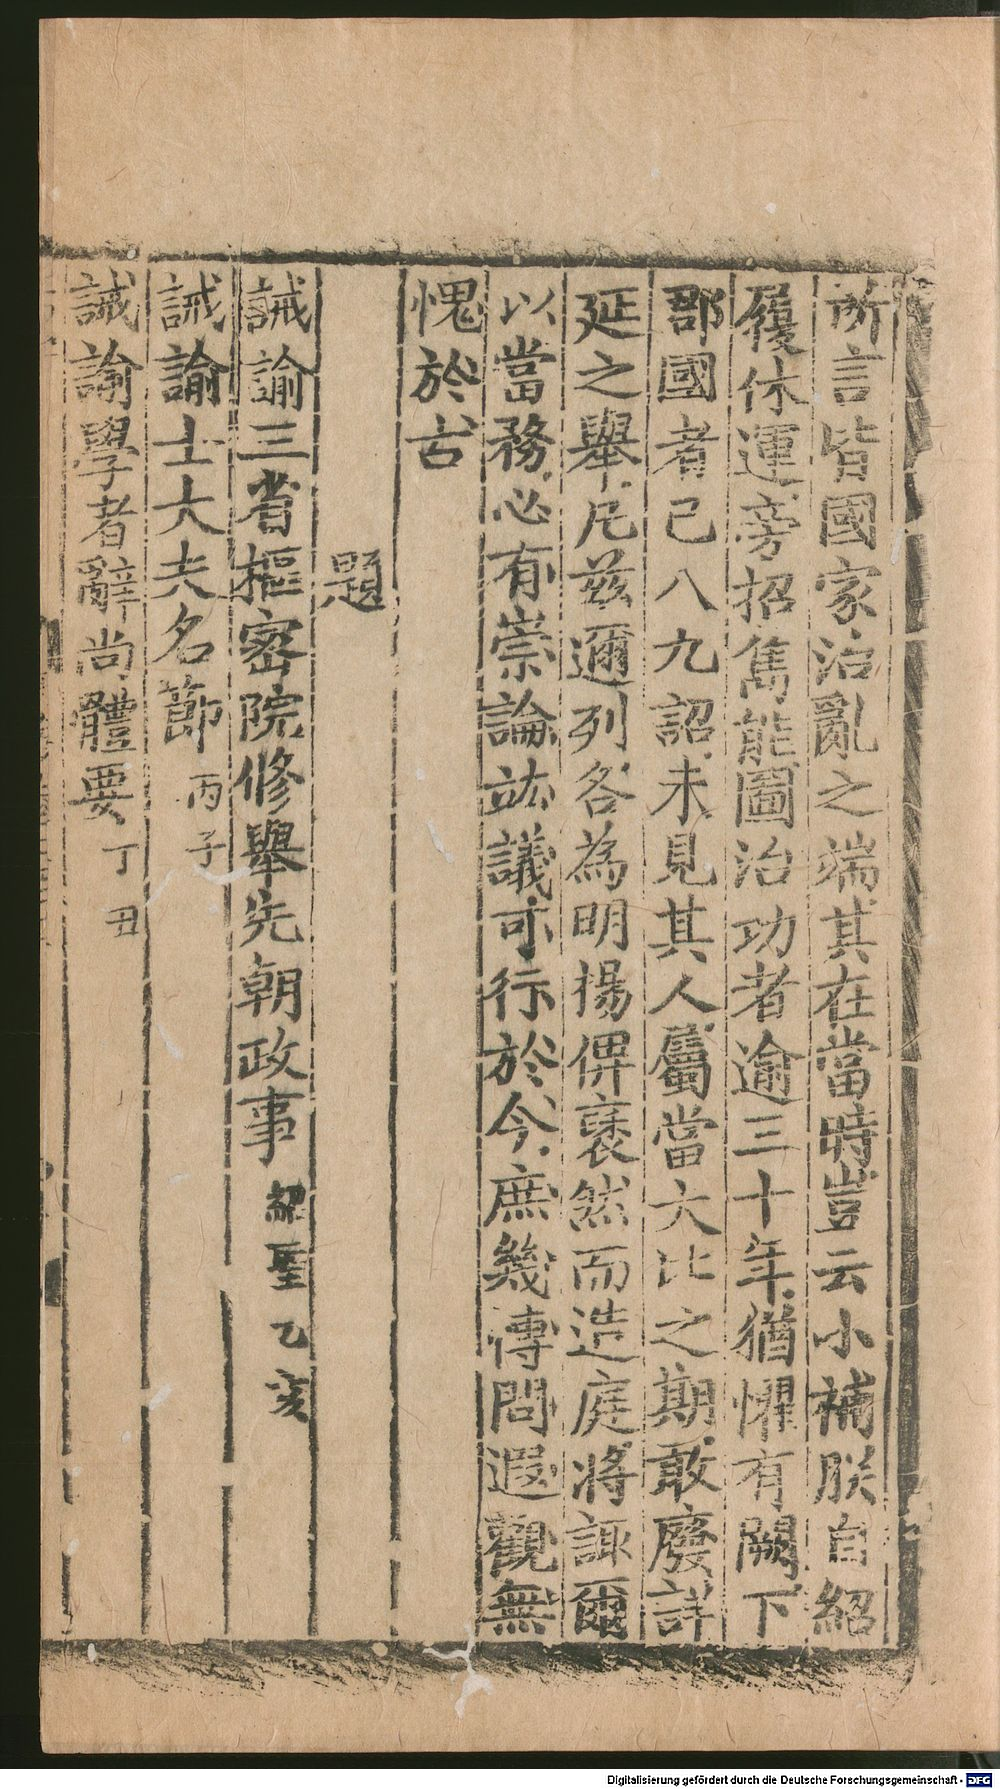 所言皆國家治亂之端其在當時豈云小補朕自紹
履休運旁招雋能圖治功者逾三十年猶懼有闕下
郡國者已八九詔未見其人屬當大比之期敢廢詳
延之舉凡茲邇列各為明揚俾褎然而造庭將諏爾
以當務必有崇論竑議可行於今庶幾傳問遐觀無
愧於古
題
誡諭三省樞密院修舉先朝政事紹聖乙亥
誡諭士大夫名節丙子
誡諭學者辭尚體要丁丑
Digitalisierung gefördert durch die Deutsche Forschungsgemeinschaft - DFG